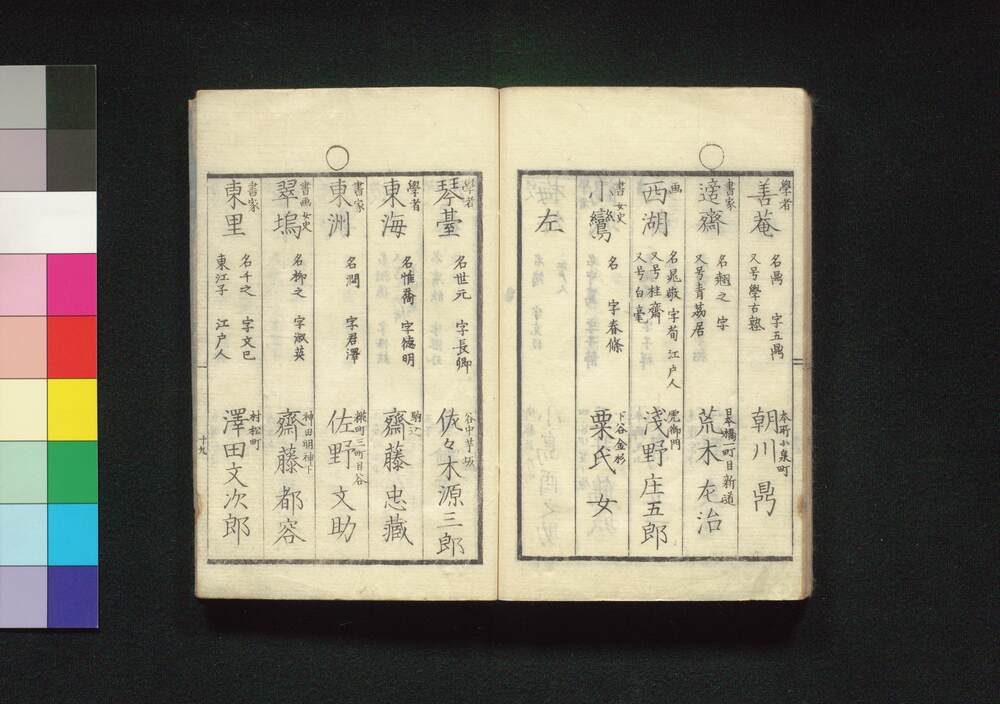 學者
善菴
名鼎 字五鼎
又号學古塾
本所小泉町
朝川鼎
書家
薳齋
名翹之 字
又号青荔居
日本橋二町目新道
荒木左治
画
西湖
名晁敬 字荀 江户人
又号桂齋
又号白毫
霊御門
淺野庄五郎
書 女史
小鸞
名 字春條
下谷金杉
粟氏女
左
學者
琴臺
名世元 字長卿
谷中芋坂
佐々木源三郎
學者
東海
名惟喬 字德明
駒込
齋藤忠藏
書家
東洲
名潤 字君澤
糀町三町目谷
佐野文助
書画女史
翠塢
名柳之 字淑英
神田明神下
齋藤都容
書家
東里
名千之 字文巳
東江子 江户人
村松町
澤田文次郎
十九